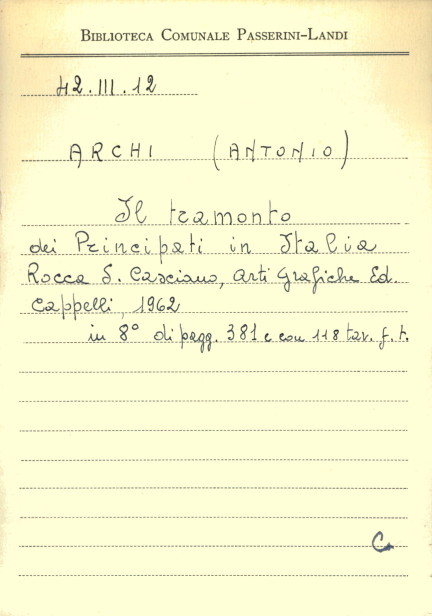 BIBLIOTECA COMUNALE PASSERINI-LANDI
42.III.12
ARCHI (ANTONIO)
Il tramonto
dei Principati in Italia
Rocca S. Casciano, Arti Grafiche Ed.
Cappelli, 1962
in 8° di pagg. 381 e con 118 tav. f. t.
C